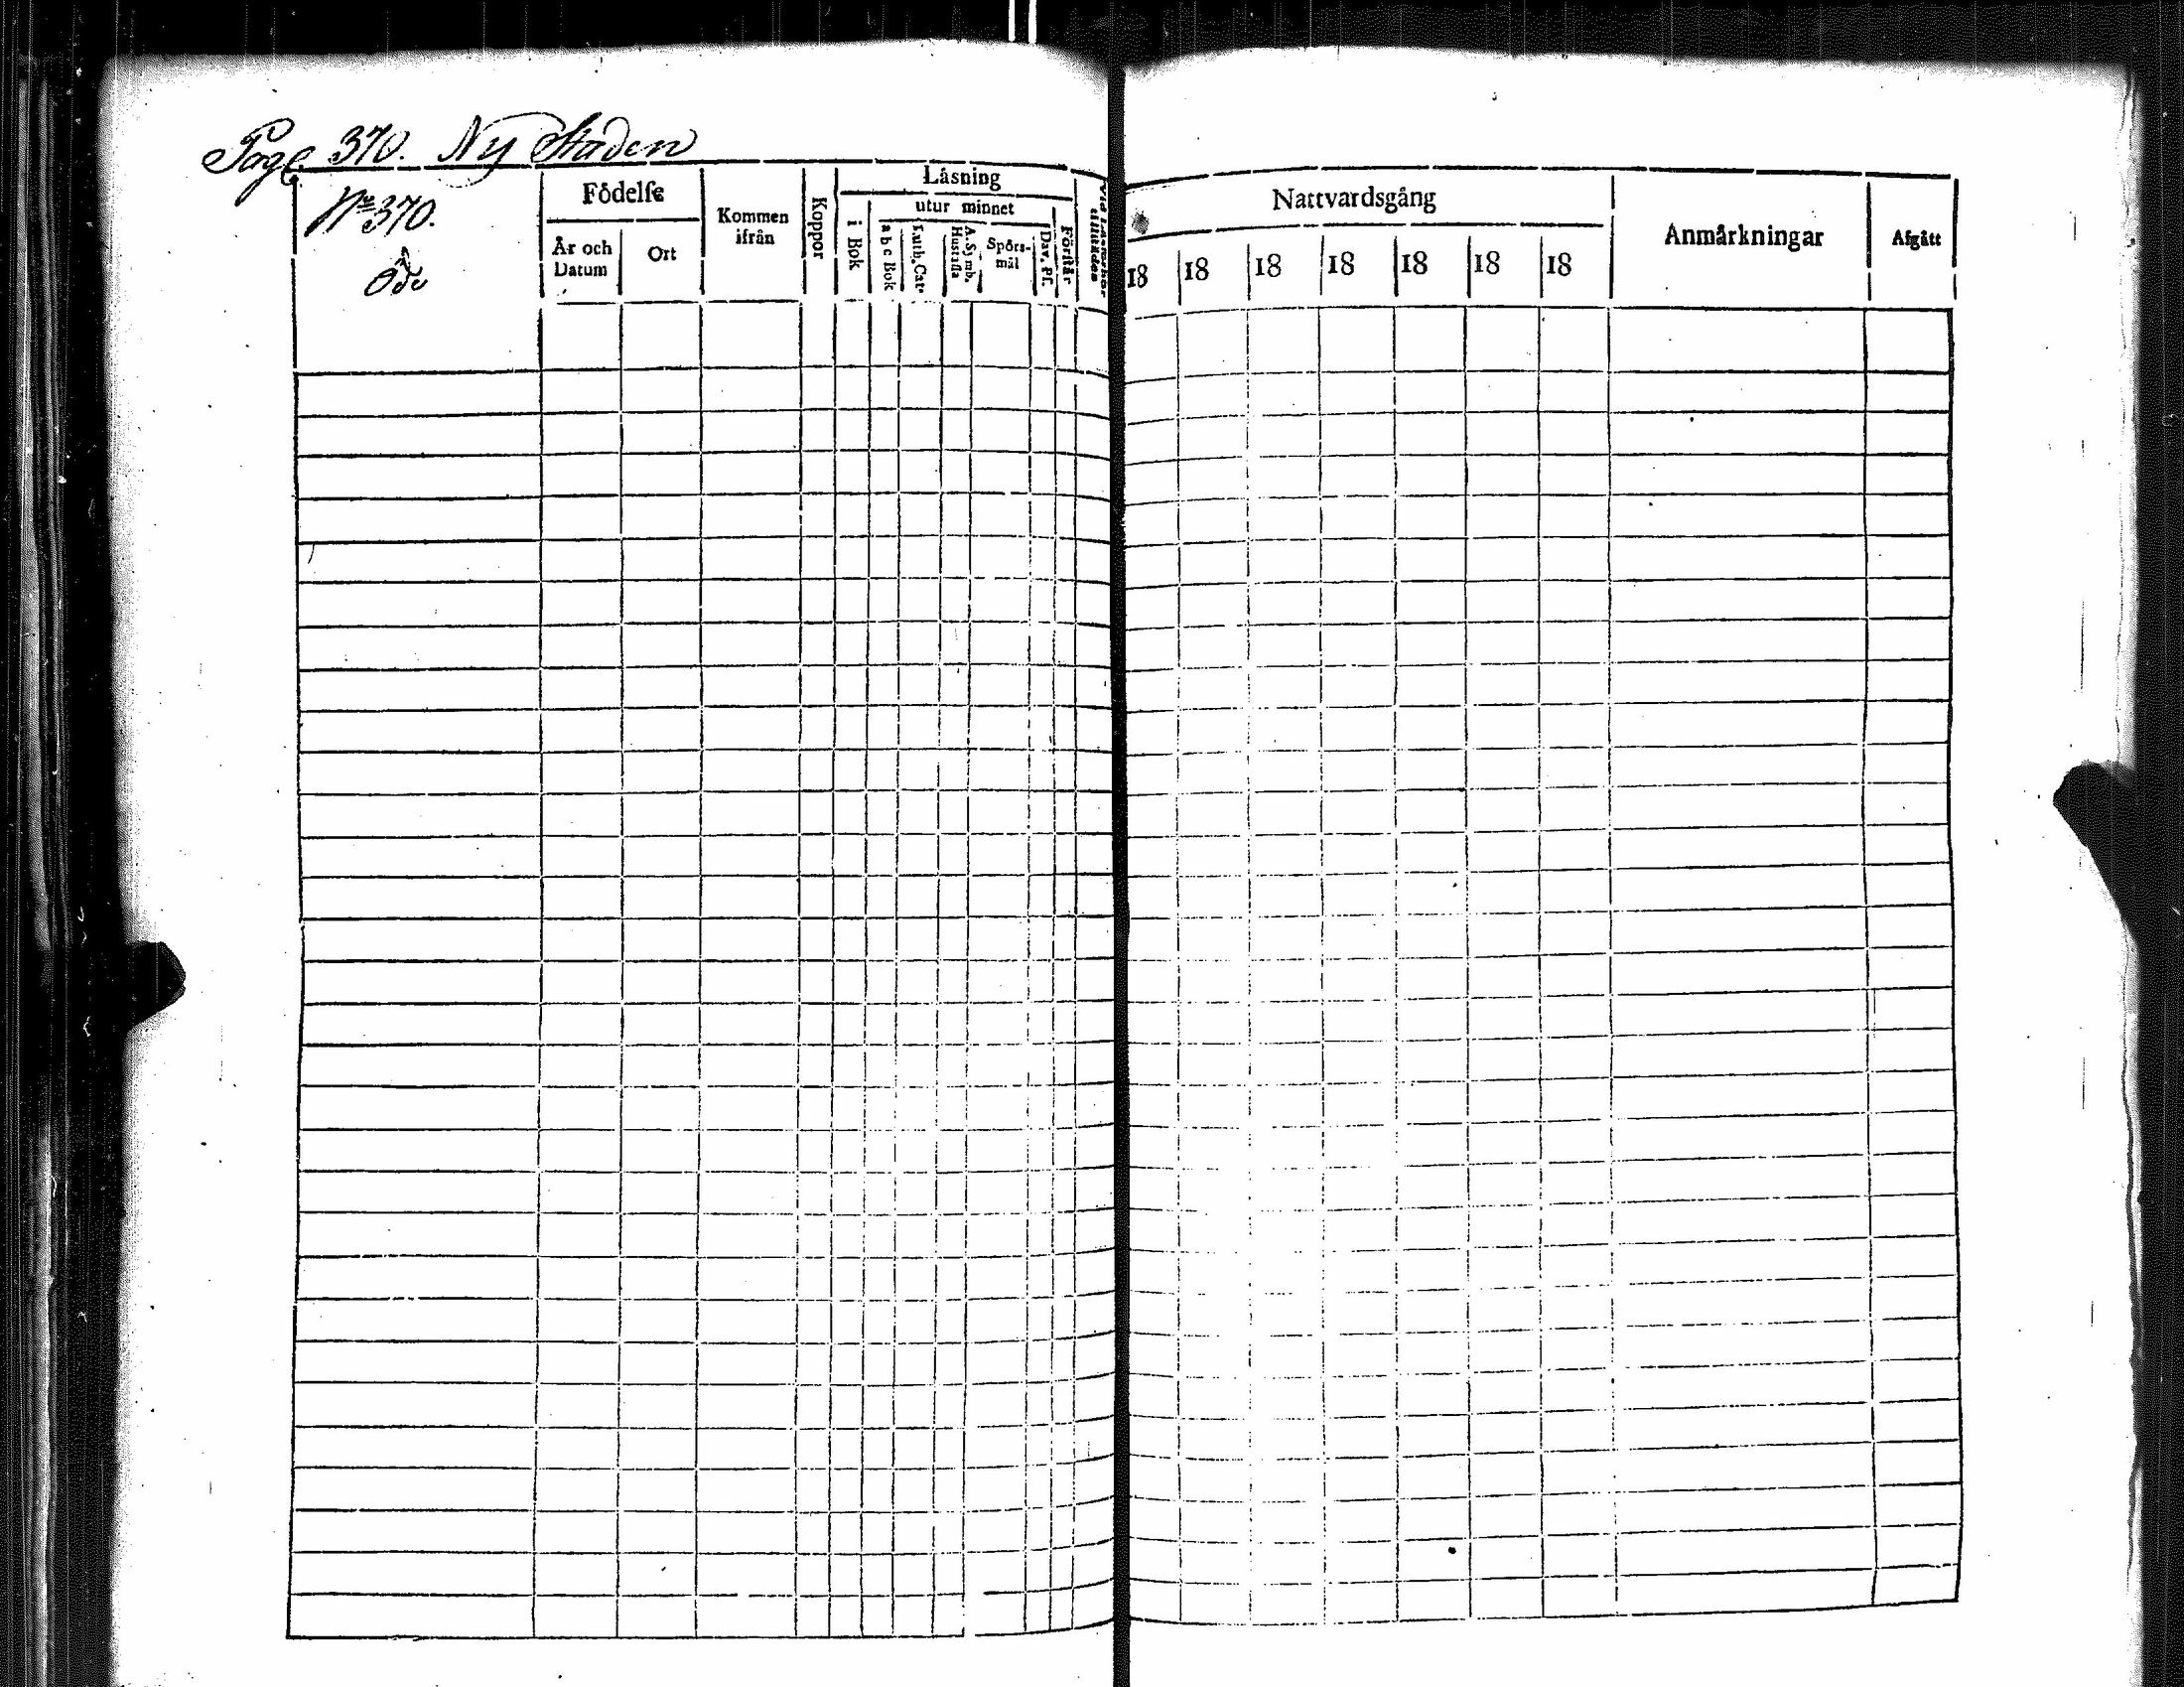 Page 370. Ny Staden
No 370.
Öde
Fôdelſe
År och
Datum
Ort
Kommen
ifrån
Koppor
Låsning
i Bok
utur minnet
a b c Bok
Luth. Cat.
A. Symb.
Hustafla
Spôrs-
mål
Dav. Pſ.
Fôrstår
Nattvardsgång
18 18 18 18 18 18 18
Anmårkningar
Afgått